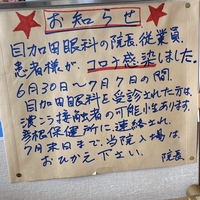 お知らせ
目加田眼科の院長、従業員、
患者様が、コロナ感染しました。
6月30日〜7月7日の間、
目加田眼科を受診された方は、
濃こう接触者の可能性あります。
彦根保健所に連絡され、
7月末日まで、当院入場は、
おひかえ下さい。
院長